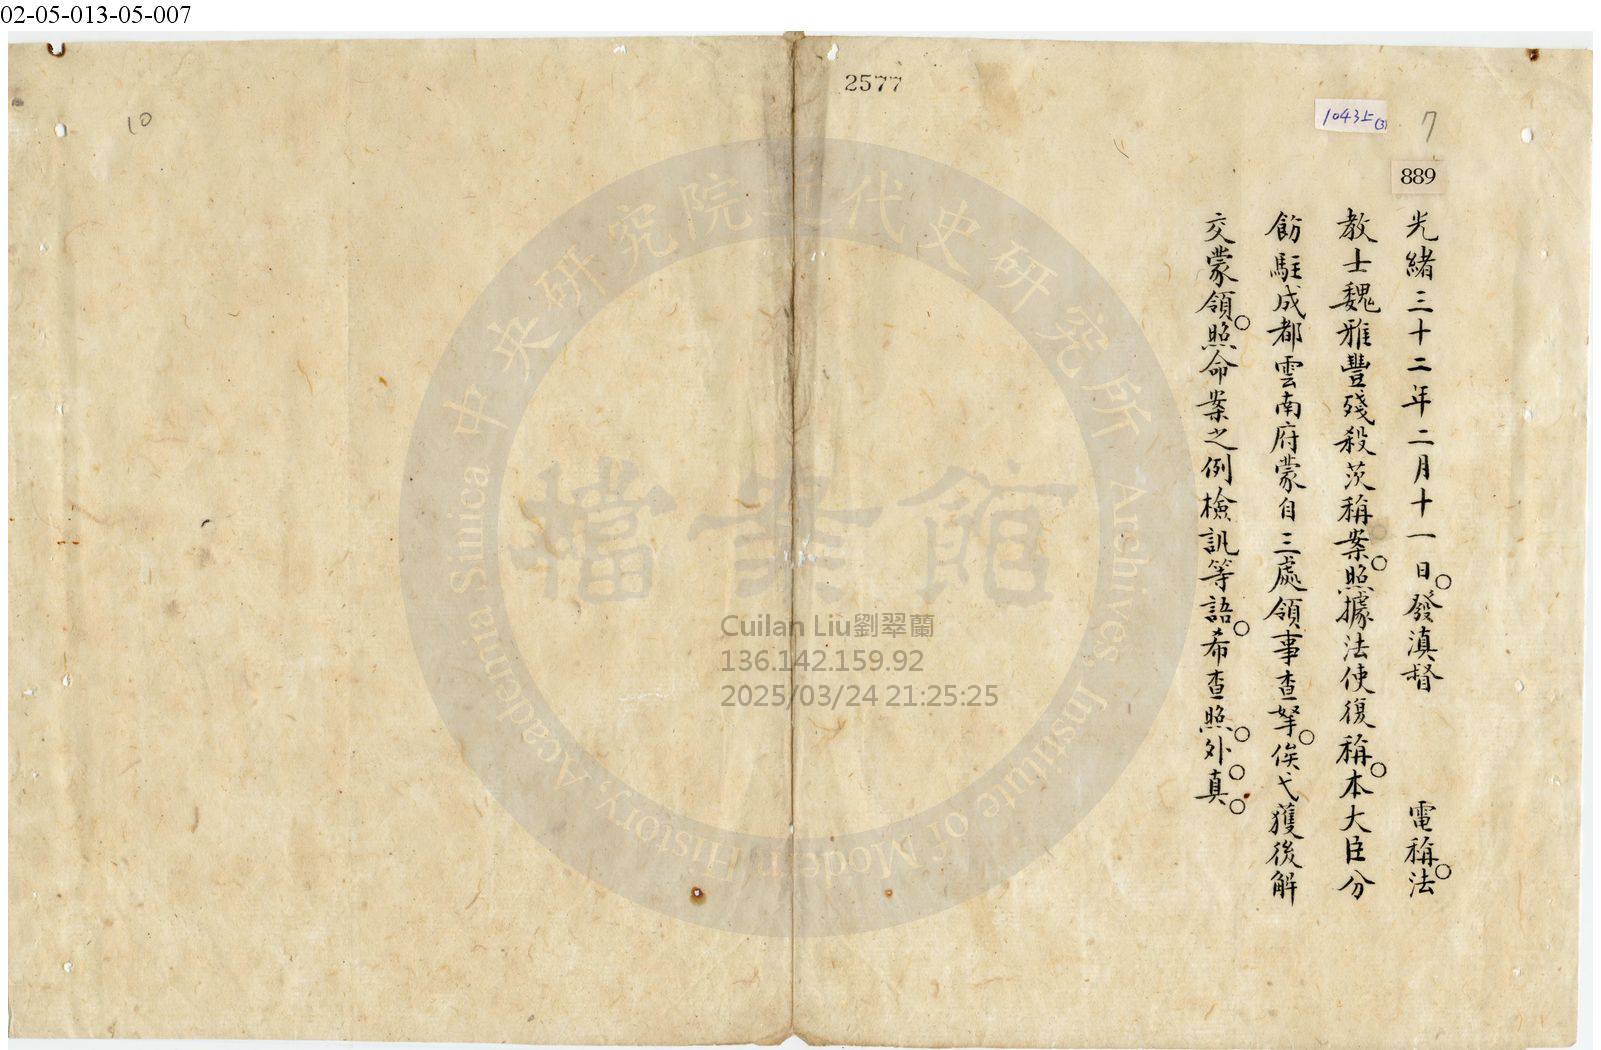 02-05-013-05-007
2577
10
1043上(3)
7
889
光緒三十二年二月十一日○發滇督 電稱○法
教士魏雅豐殘殺茨稱案○照據法使復稱○本大臣分
飭駐成都雲南府蒙自三處領事查拏○俟弋獲後解
交蒙領○照命案之例檢訊等語○希查照○外○真○
中央研究院近代史研究所
檔案館
Archives, Institute of Modern History, Academia Sinica
Cuilan Liu劉翠蘭
136.142.159.92
2025/03/24 21:25:25